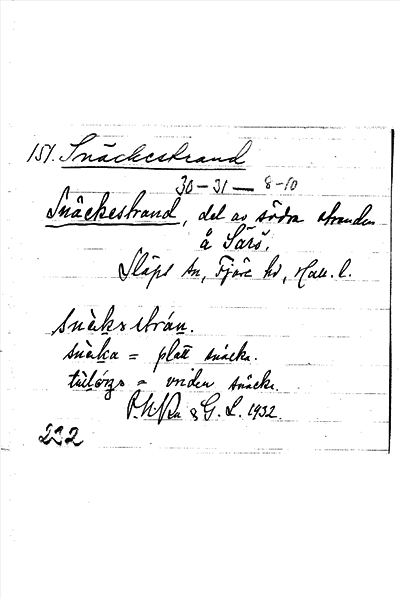 151. Snäckestrand
30-31 — 8-10
Snäckestrand, del av södra stranden
å Särö,
Släps sn, Fjäre hd, Hall. l.
snäks strån.
snäka = platt snäcka.
= vriden snäcka.
& G. L. 1932.
232